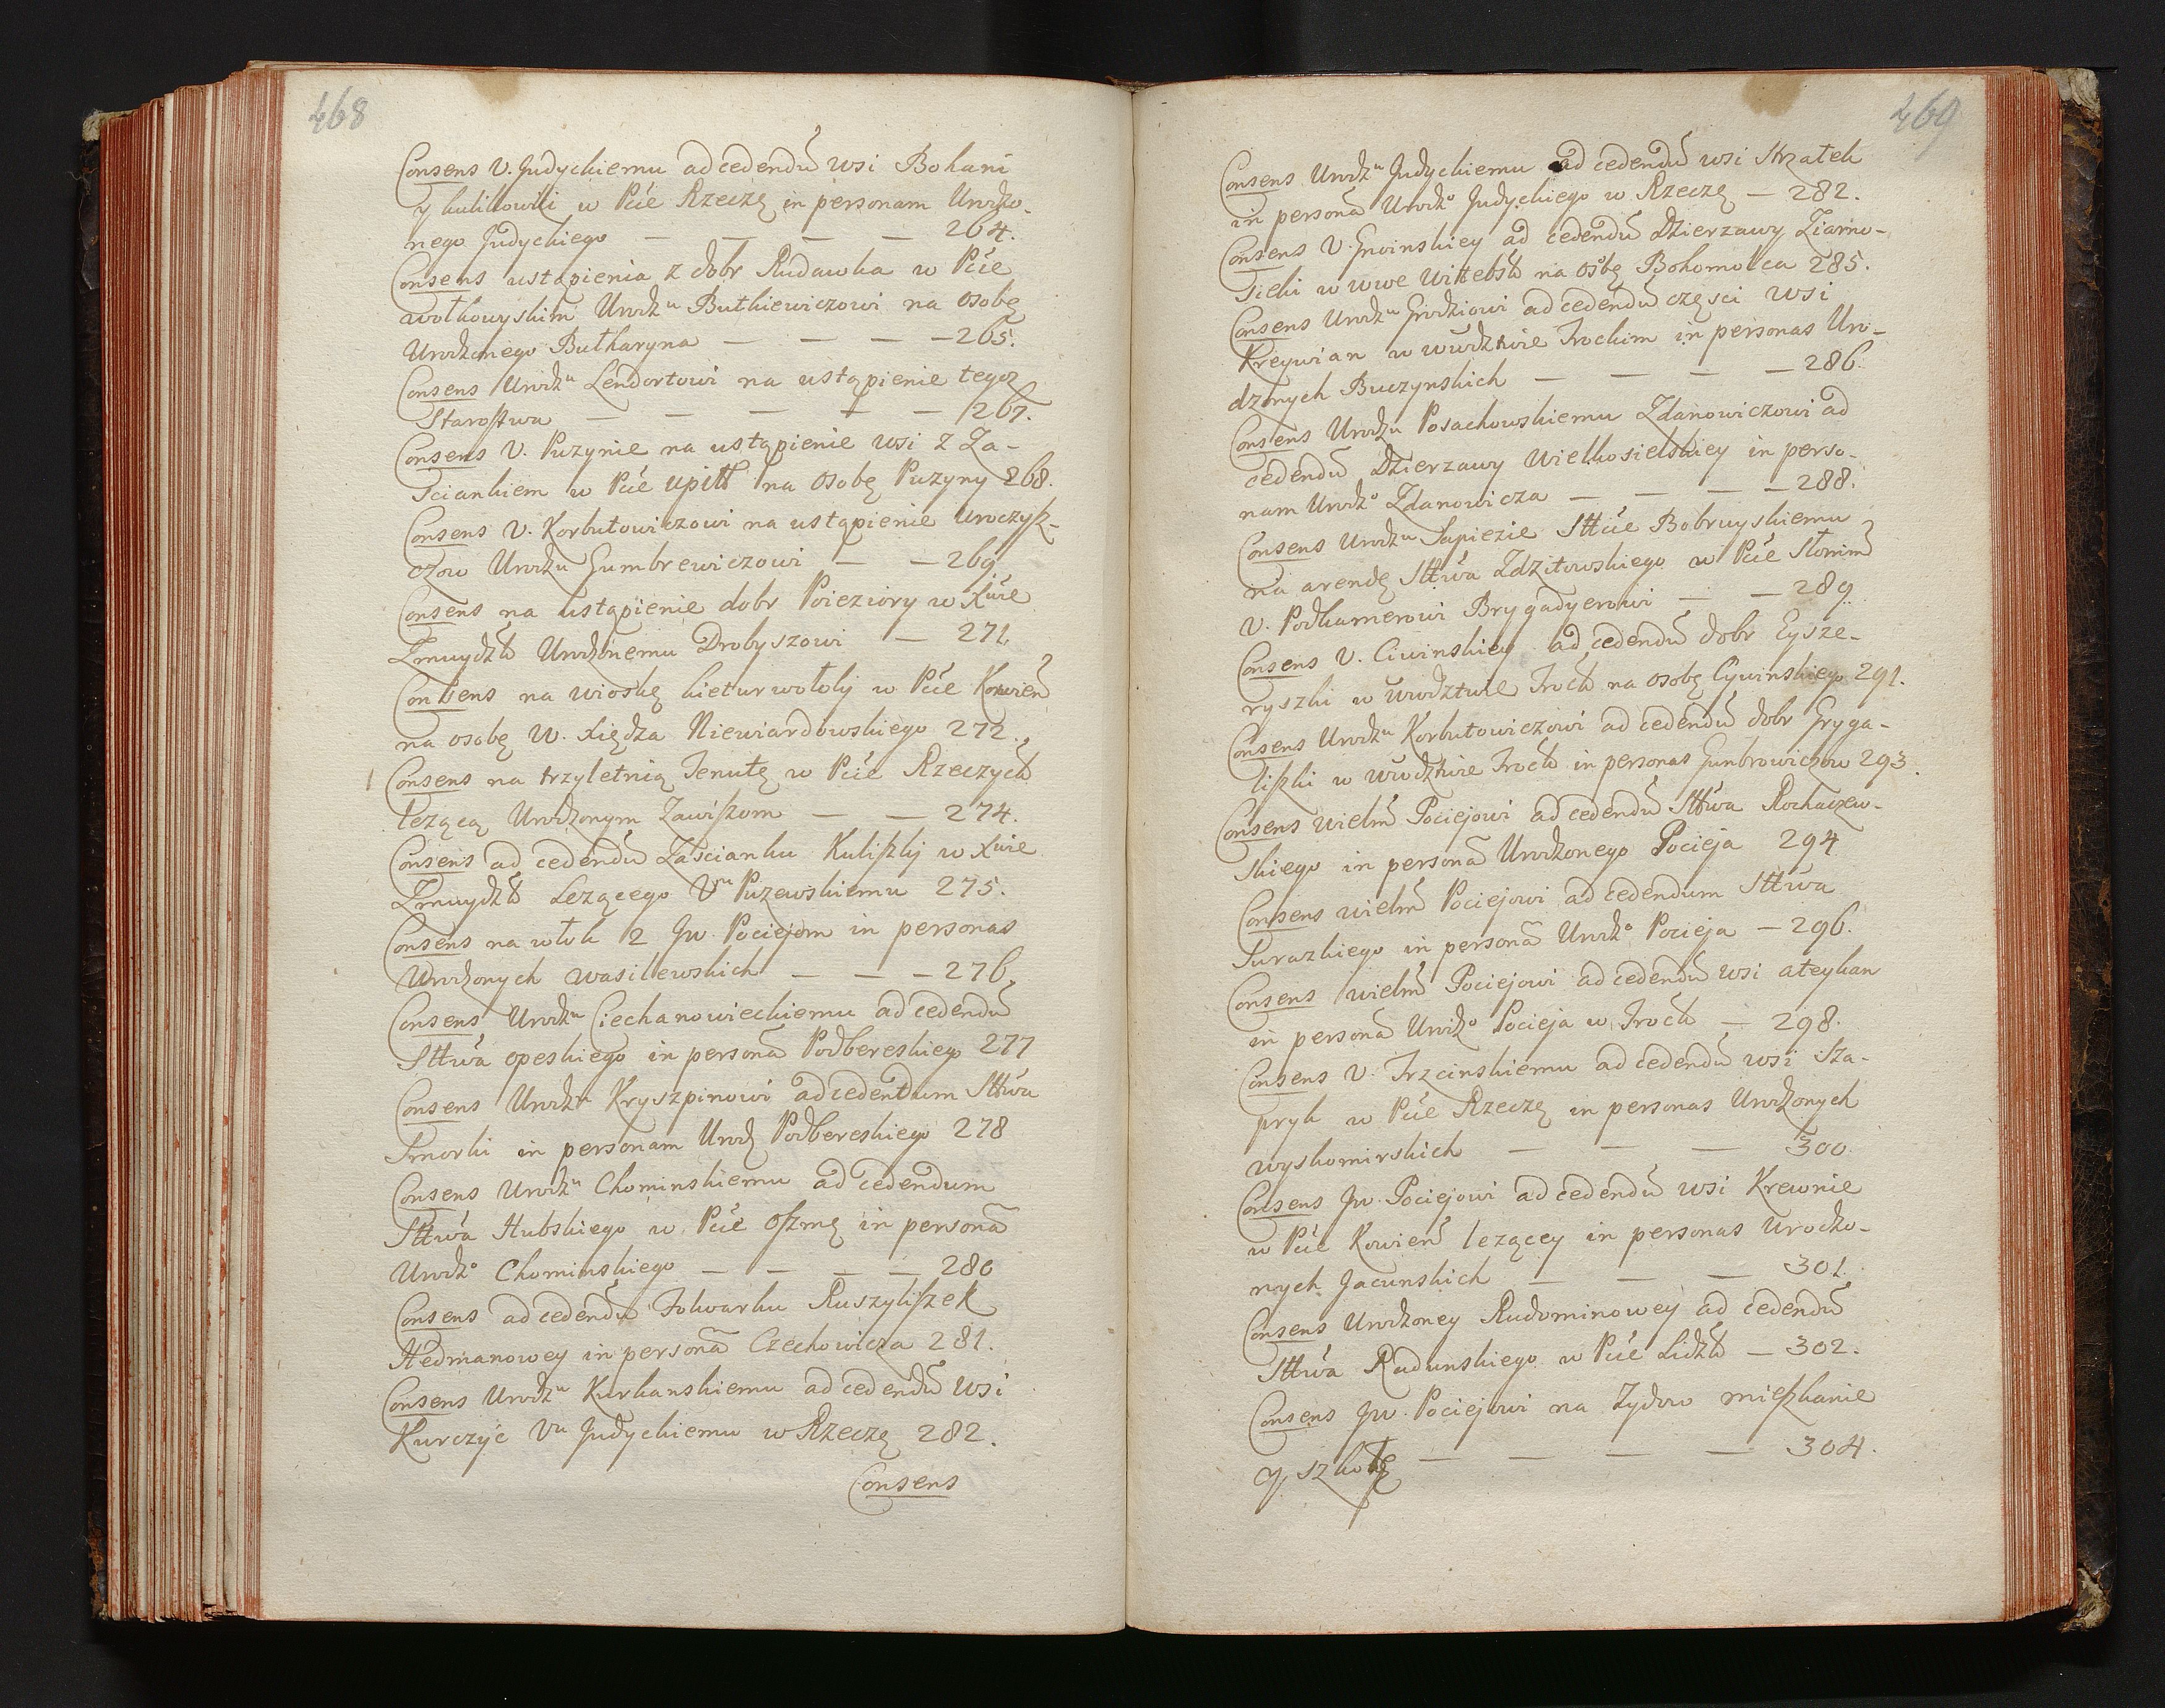 468
Consens U. Judyckiemu ad cedendū wsi Bohani
y kulikowki w Pcie Rzeczę in personam Urodzo-
nego Judyckiego — — — — 264.
Consens ustąpienia z dobr Rudawka w Pcie
wołkowyskim Urodzu Butkiewiczowi na osobę
Urodzonego Butharyna — — — — 265.
Consens Urodzu Lendortowi na ustąpienie tegoz
Starostwa — — — — — 267.
Consens U. Puzynie na ustąpienie wsi z Za-
sciankiem w Pcie upitt na osobę Puzyny 268.
Consens U. Korbutowiczowi na ustąpienie uroczysz-
czow Urodzu Gumbrewiczowi — — 269
Consens na ustąpienie dobr Poieziory w Xwie
Zmuydzk Urodzonemu Drobyszowi — 271.
Consens na wioskę kieturwołoki w Pcie Kowień
na osobę W. Xiędza Niewiardowskiego 272.
Consens na trzyletnią Tenutę w Pcie Rzeczyck
lezącą Urodzonym Zawiszom — — 274.
Consens ad cedendū Zascianku Kuliszki w Xwie
Zmuydzk Lezącego Uu Puzewskiemu 275.
Consens na włok 2 Jw. Pociejom in personas
Urodzonych wasilewskich — — — 276.
Consens Urodzu Ciechanowieckiemu ad cedendū
Sttwa opeskiego in personā Podbereskiego 277
Consens Urodzu Kryszpinowi ad cedendum Sttwa
Smorki in personam Urodz Podbereskiego 278
Consens Urodzu Chominskiemu ad cedendum
Sttwa Hubskiego w Pcie Oszmę in personā
Urodzo Chominskiego — — — — 280
Consens ad cedendū Folwarku Ruszyliszek
Hedmanowey in personā Czechowicza 281.
Consens Urodzu Kurhanskiemu ad cedendū wsi
Kurczyc Uu Judyckiemu w Rzeczę 282.
Consens
469
Consens Urodzu Judyckiemu ad cedendū wsi Strzałek
in personā Urodzo Judyckiego w Rzeczę — 282.
Consens U. Gnoinskiey ad cedendū Dzierzawy Ziarno-
sieki w wwe witebsk na osbę Bohomolca 285.
Consens Urodzu Grodziowi ad cedendū częsci wsi
Kreywian w wwdztwie Trockim in personas Uro-
dzonych Buczynskich — — — — 286.
Consens Urodzu Posachowskiemu Zdanowiczowi ad
cedendū Dzierzawy wielkosielskiey in perso-
nam Urodzo Zdanowicza — — — — 288.
Consens Urodzu Sapiezie Sttcie Bobruyskiemu
na arendę Sttwa Zdzitowskiego w Pcie Słonim
U. Podkamerowi Brygadyerowi — — 289
Consens U. Ciwinskiey ad cedendū dobr Eysze-
ryszki w wwdztwie Trock na osobę Cywinskiego 291.
Consens Urodzu Korbutowiczowi ad cedendū dobr Gryga-
liszki w wwodztwie Trock in personas Gunbrowiczow 293.
Consens wielm Pociejowi ad cedendū Sttwa Rochaczew-
skiego in personā Urodzonego Pocieja 294
Consens wielm Pociejowi ad cedendum Sttwa
Surazkiego in personā Urodzo Pocieja — 296.
Consens wielm Pociejowi ad cedendū wsi ateykan
in personā Urodzo Pocieja w Trock — 298.
Consens U. Trzcinskiemu ad cedendū wsi Sza-
pryk w Pcie Rzeczę in personas Urodzonych
wyskomirskich — — — 300.
Consens Jw. Pociejowi ad cedendū wsi Krewnie
w Pcie Kowień lezącey in personas urodzo-
nych Jacunskich — — — 301.
Consens Urodzoney Rudominowey ad cedendū
Sttwa Radunskiego w Pcie Lidzk — 302.
Consens Jw. Pociejowi na Zydow mieszkanie
y szkołę — — — — 304.